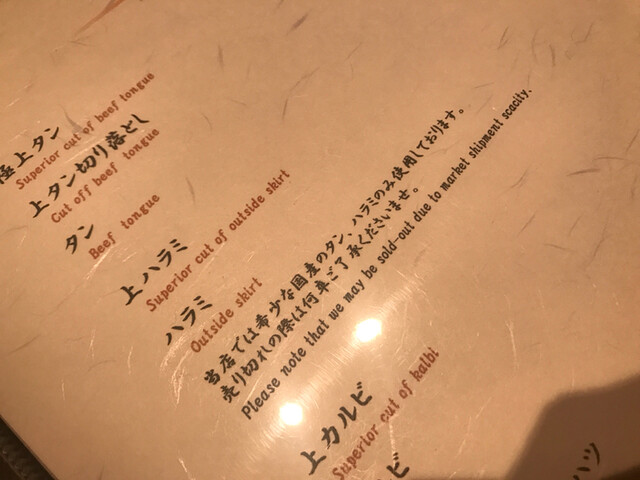 極上タン
Superior cut of beef tongue
上タン切り落とし
Cut off beef tongue
タン
Beef tongue
上ハラミ
Superior cut of outside skirt
ハラミ
Outside skirt
当店では希少な国産のタン、ハラミのみ使用しております。
売り切れの際は何卒ご了承くださいませ。
Please note that we may be sold-out due to market shipment scacity.
上カルビ
Superior cut of kalbi
ビ
ハツ